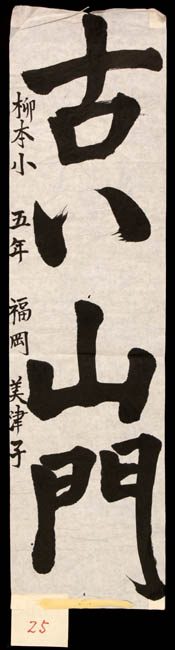 古い山門
柳本小 五年 福岡 美津子
25